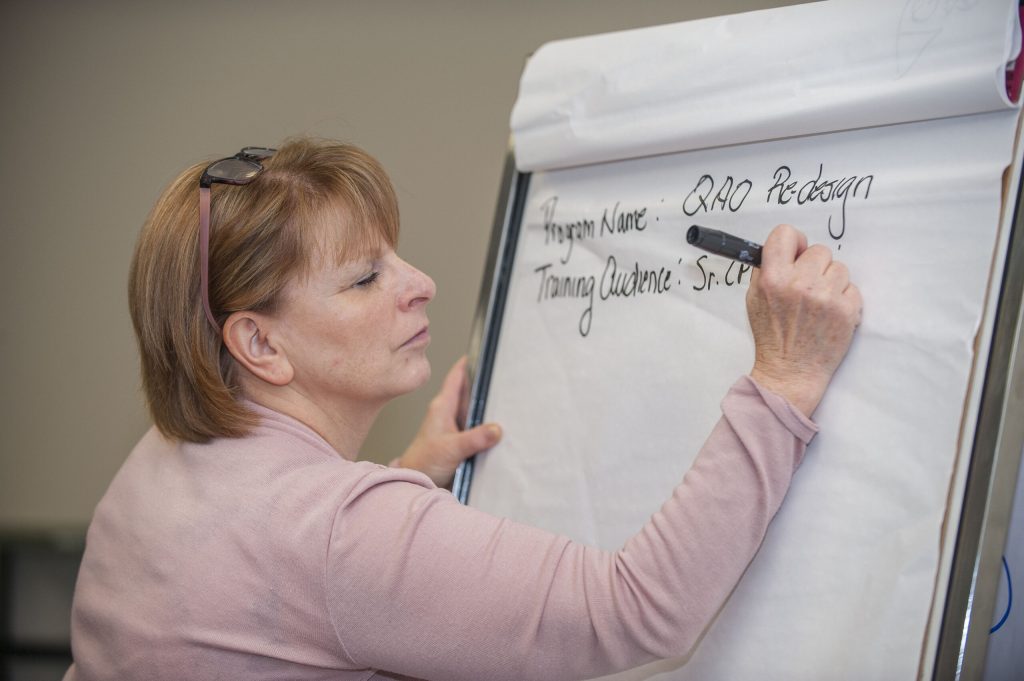 Program Name: QAO Re-design
Training Audience: Sr.